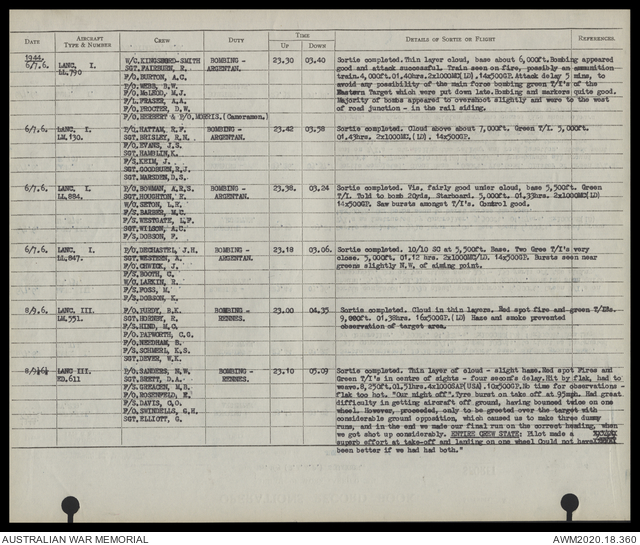 DATE AIRCRAFT TYPE & NUMBER CREW DUTY TIME UP DOWN DETAILS OF SORTIE OR FLIGHT REFERENCES.
1944.
6/7.6. LANC. I. LL.790 W/C.KINGSFORD-SMITH BOMBING - ARGENTAN. 23.30 03.40 Sortie completed.Thin layer cloud, base about 6,000ft.Bombing appeared
SGT.FAIRBURN, R. good and attack successful. Train seen on fire, possibly an ammunition
F/O.BURTON, A.C. train.4,000ft.01.40hrs.2x1000MC(LD).,14x500GP. Attack delay 5 mins, to
P/O.WEBB, B.W. avoid any possibility of the main force bombing green T/I's of the
F/O.McLEOD, M.J. Eastern Target which were put down late.Bombing and markers quite good.
F/L.FRASER, A.A. Majority of bombs appeared to overshoot slightly and were to the west
F/O.PROCTER, D.W. of road junction - in the rail siding.
F/O.HERBERT & P/O.MORRIS.(Cameramen.)
6/7.6. LANC. I. LM.130. P/O.HATTAM, R.F. BOMBING - ARGENTAN. 23.42 03.58 Sortie completed. Cloud above about 7,000ft. Green T/I. 5,000ft.
SGT.BRISLEY, R.N. 01.43hrs. 2x1000MC.(LD). 14x500GP.
F/O.EVANS, J.S.
SGT.HAMBLIN,K.
F/S.KEIM, J.
SGT.GOODBURN,H.J.
SGT.MARSDEN,D.S.
6/7.6. LANC. I. LL.884. P/O.BOWMAN, A.R.S. BOMBING - ARGENTAN. 23.38. 03.24 Sortie completed. Vis. fairly good under cloud, base 5,500ft. Green
SGT.HOUGHTON, R. T/I. Told to bomb 20yds, Starboard. 5,000ft. 01.33hrs. 2x1000MC(LD)
W/O.SETON, L.H. 14x500GP. Saw bursts amongst T/I's. Control good.
F/S.BARBER, M.C.
F/S.WESTGATE, L.F.
SGT.WILSON, A.C.
F/S.DOBSON, F.
6/7.6. LANC. I. LL.847. P/O.DECHASTEL, J.H. BOMBING - ARGENTAN. 23.18 03.06. Sortie completed. 10/10 SC at 5,500ft. Base. Two Gree T/I's very
SGT.WESTERN, A. close. 5,000ft. 01.12 hrs. 2x1000MC/LD. 14x500GP. Bursts seen near
F/O.CHWICK, J. greens slightly N.W. of aiming point.
F/S.BOOTH, C.
W/O.LARKIN, R.
F/S.FOSS, M.
F/S.DOBSON, K.
8/9.6. LANC. III. LM.551. F/O.PURDY, B.K. BOMBING - RENNES. 23.00 04.35 Sortie completed. Cloud in thin layers. Red spot fire and green T/IMs.
SGT.HORNBY, R. 9,000ft. 01.38hrs. 16x500GP.(LD) Haze and smoke prevented
F/S.HIND, M.C. observation of target area.
F/O.PAPWORTH, C.G.
F/O.NEEDHAM, B.
F/S.SCHMERL, K.S.
SGT.DEVER, W.K.
8/9/6. LANC III. ED.611 P/O.SANDERS, N.W. BOMBING - RENNES. 23.10 05.09 Sortie completed. Thin layer of cloud - slight haze.Red spot Fires and
SGT.BRETT, D.A. Green T/I's in centre of sights - four seconds delay.Hit by flak, had to
F/S.GREACEN, M.B. weave.8,250ft.01.51hrs.4x1000SAP(USA).10x500GP.No time for observations -
F/O.ROSENFELD, E. flak too hot. "Our night off".Tyre burst on take off at 95mph. Had great
F/S.DAVIS, C.O. difficulty in getting aircraft off ground, having bounced twice on one
F/O.SWINDELLS, G.H. wheel. However, proceeded, only to be greeted over the target with
SGT.ELLIOTT, G. considerable ground opposition, which caused us to make three dummy
runs, and in the end we made our final run on the correct heading, when
we got shot up considerably. ENTIRE CREW STATE: Pilot made a
superb effort at take-off and landing on one wheel Could not have
been better if we had had both."
AUSTRALIAN WAR MEMORIAL AWM2020.18.360